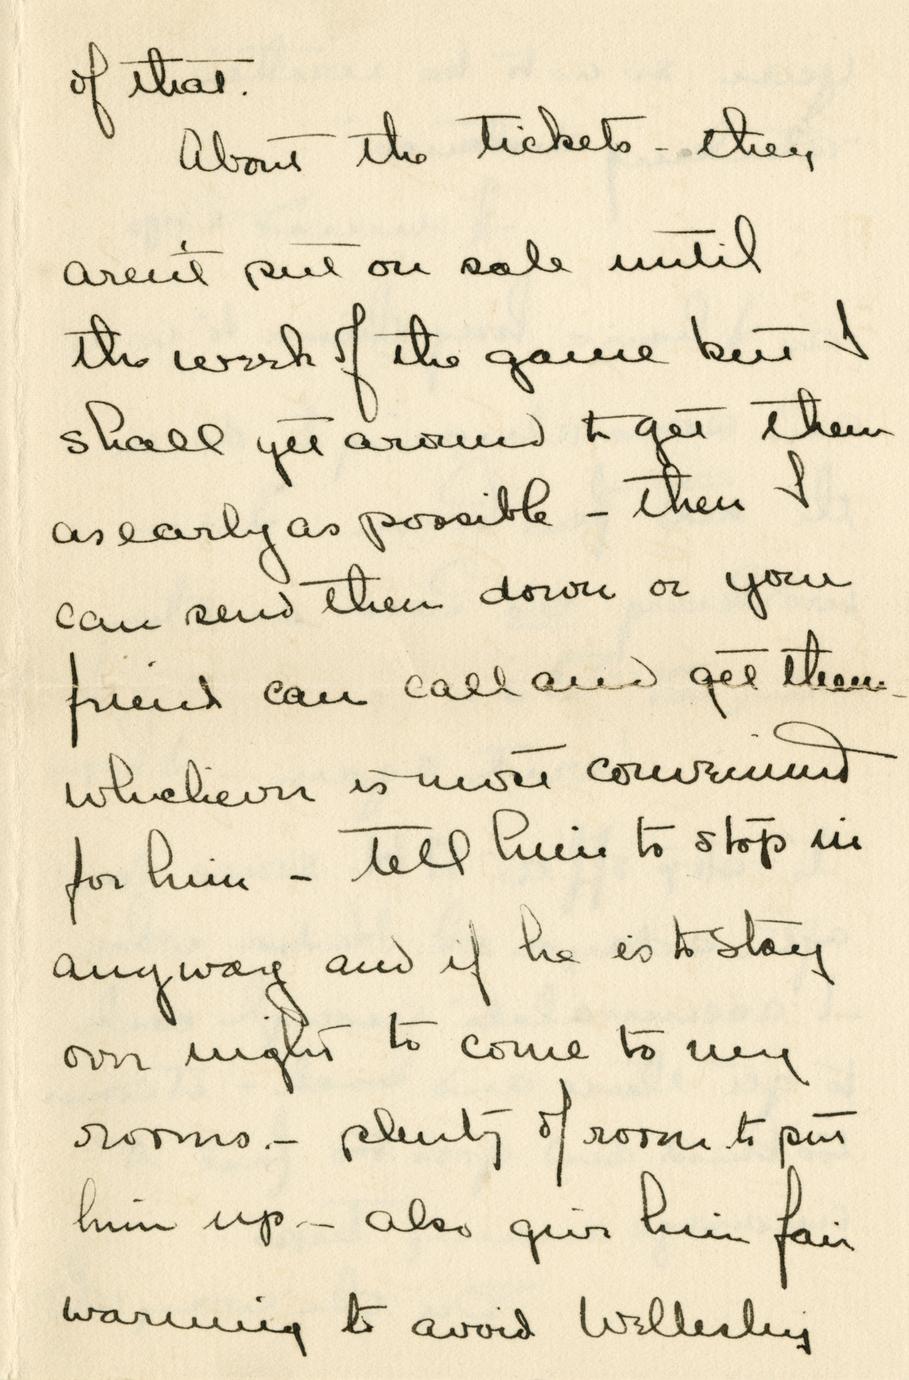 of that.
About the tickets - they
aren't put on sale until
the week of the game but I
shall get around to get them
as early as possible - then I
can send them down or your
friend can call and get them -
whichever is most convenient
for him - Tell him to stop in
anyway and if he is to stay
over night to come to my
rooms. - plenty of room to put
him up - also give him fair
warning to avoid Wellesley